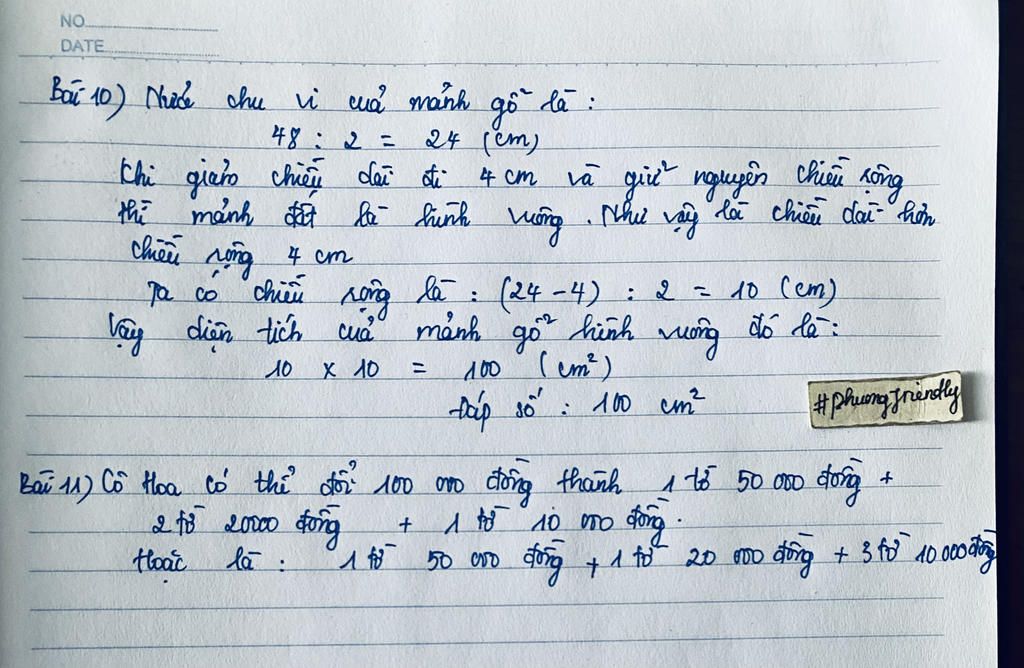 NO
DATE
Bài 10) Nửa chu vi của mảnh gỗ là :
48 : 2 = 24 (cm)
Khi giảm chiều dài đi 4 cm và giữ nguyên chiều rộng
thì mảnh đất là hình vuông. Như vậy là chiều dài hơn
chiều rộng 4 cm
Ta có chiều rộng là : (24 - 4) : 2 = 10 (cm)
Vậy diện tích của mảnh gỗ hình vuông đó là :
10 x 10 = 100 (cm²)
Đáp số : 100 cm²
#phuongfriendly
Bài 11) Cô Hoa có thể đổi 100 000 đồng thành 1 tờ 50 000 đồng +
2 tờ 20000 đồng + 1 tờ 10 000 đồng.
Hoặc là : 1 tờ 50 000 đồng + 1 tờ 20 000 đồng + 3 tờ 10 000 đồng